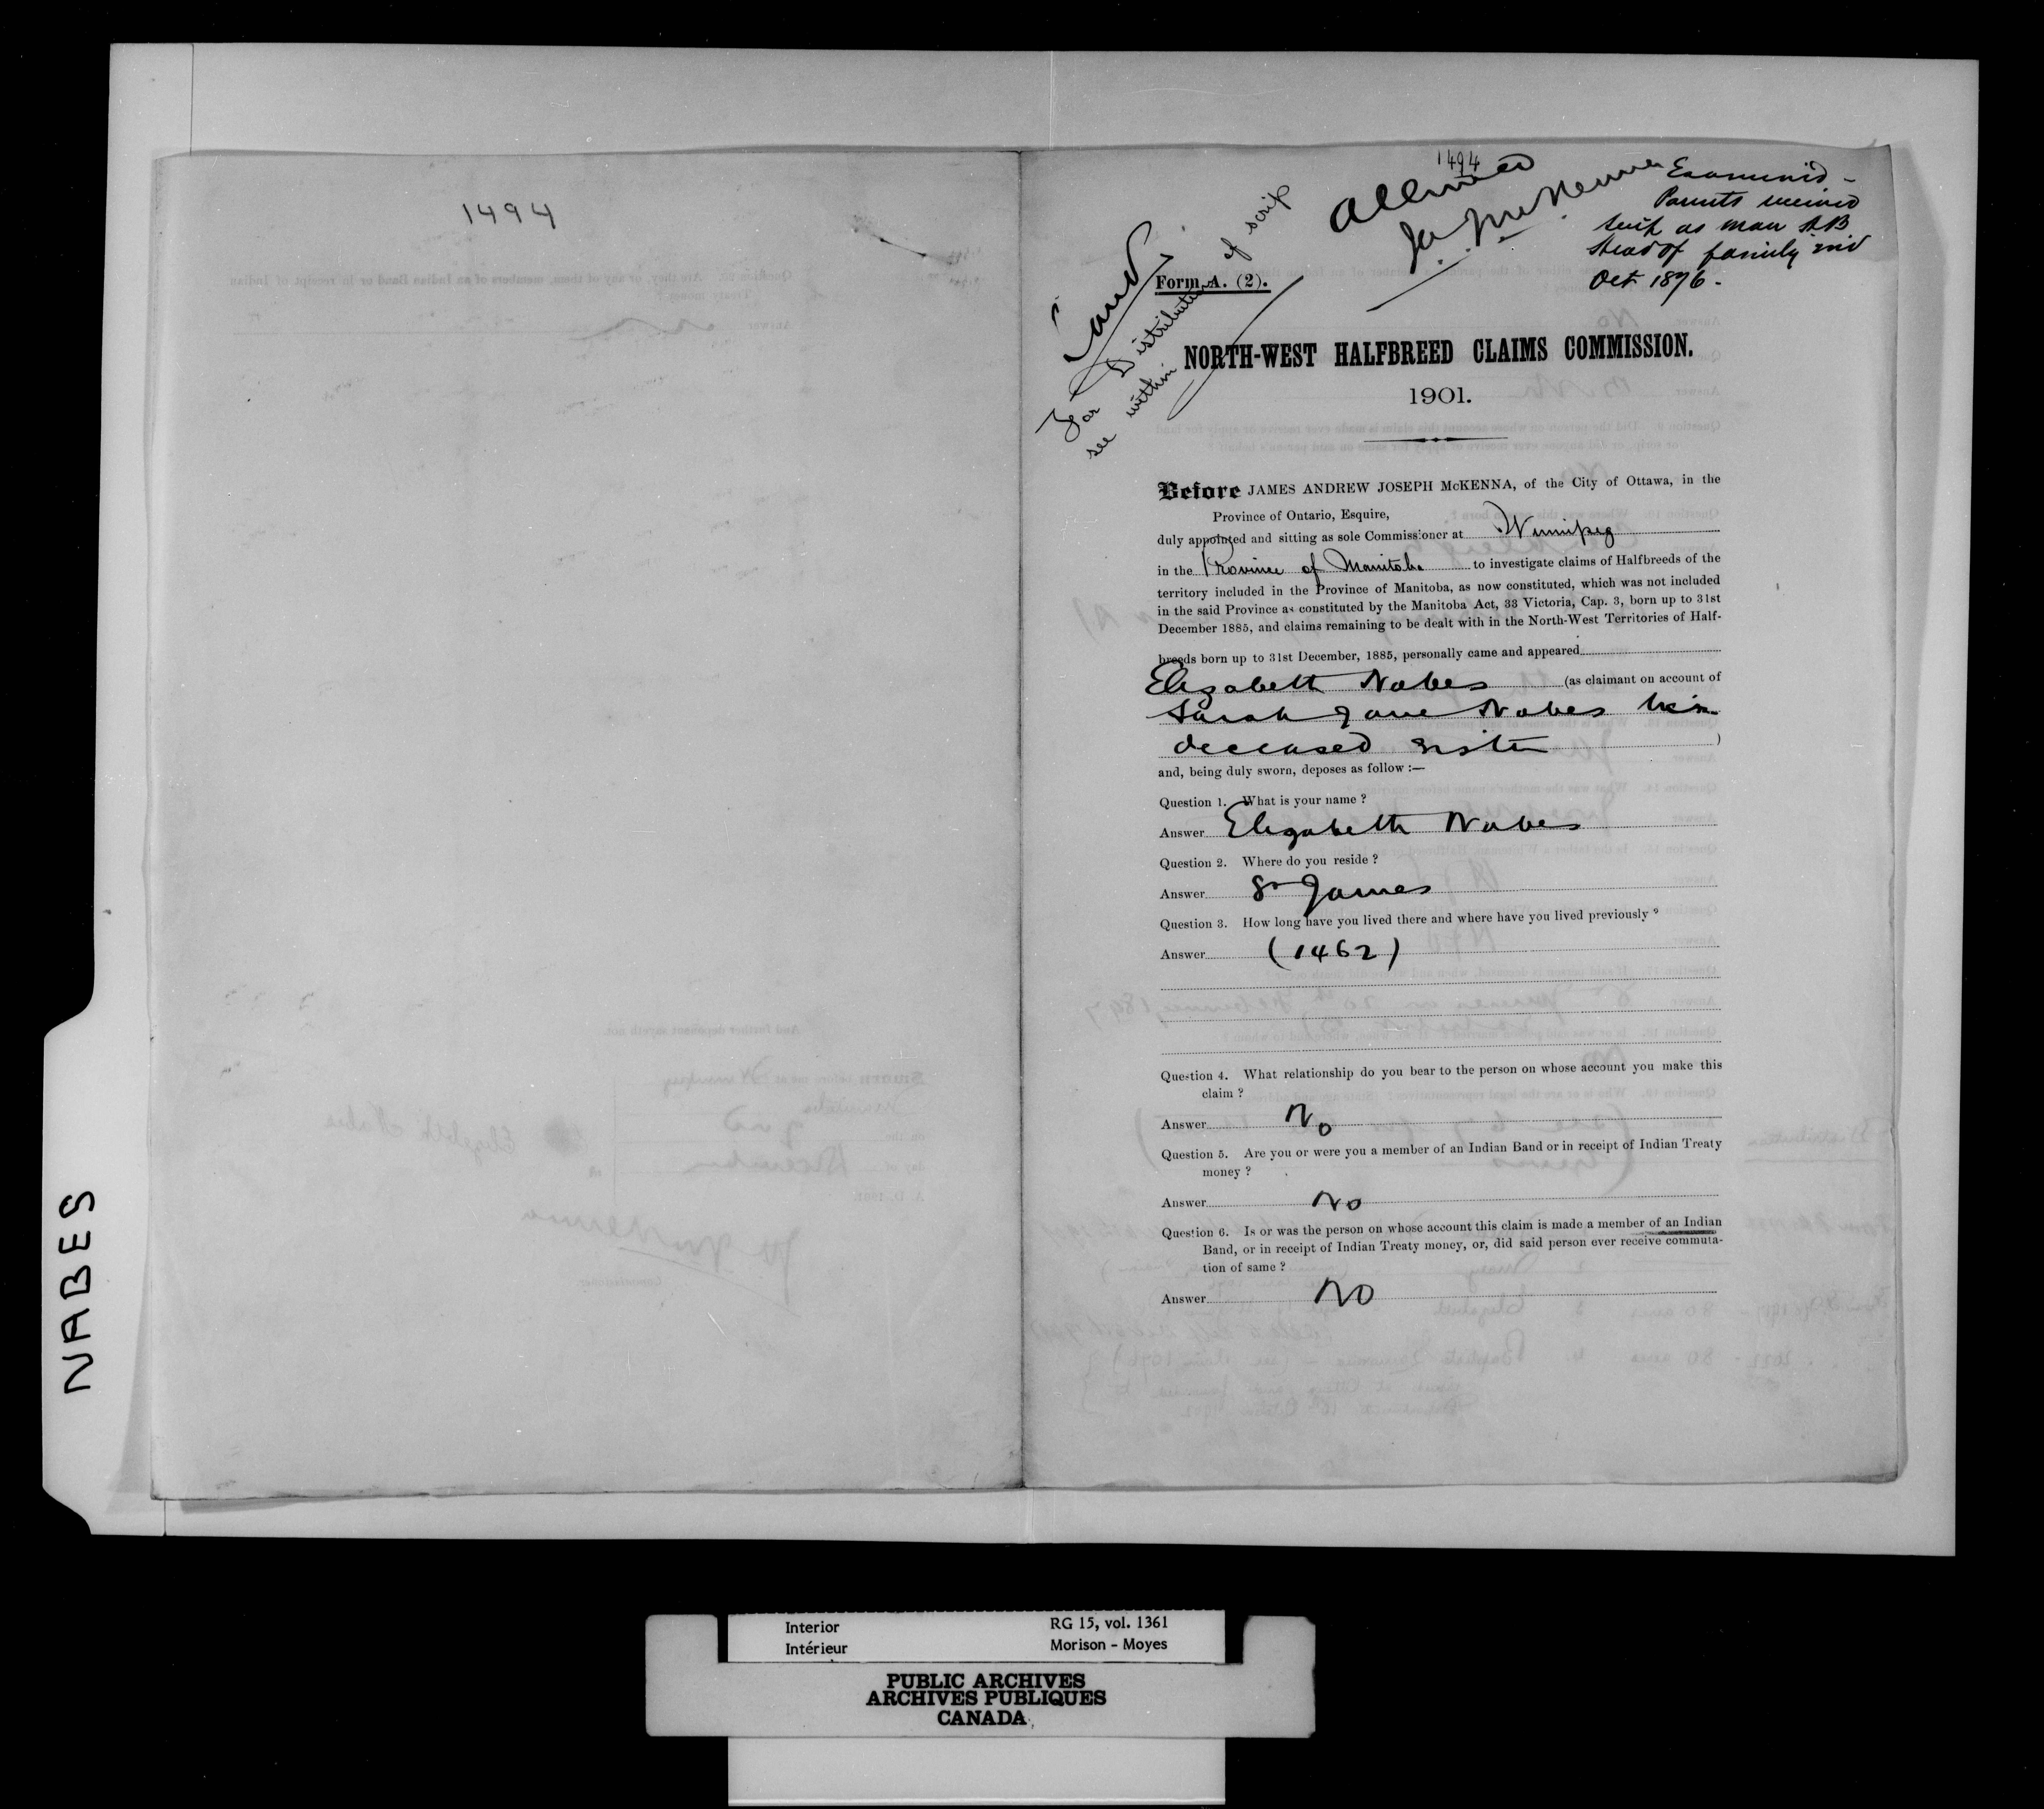 1494
NABES
1494
Allowed
Examined -
Parents received
scrip as man HB
Head of family and
Oct 1876 -
Land
For Distribution of scrip
see within
Form A. (2).
NORTH-WEST HALFBREED CLAIMS COMMISSION.
1901.
Before JAMES ANDREW JOSEPH McKENNA, of the City of Ottawa, in the
Province of Ontario, Esquire,
duly appointed and sitting as sole Commissioner at Winnipeg
in the Province of Manitoba to investigate claims of Halfbreeds of the
territory included in the Province of Manitoba, as now constituted, which was not included
in the said Province as constituted by the Manitoba Act, 33 Victoria, Cap. 3, born up to 31st
December 1885, and claims remaining to be dealt with in the North-West Territories of Half-
breeds born up to 31st December, 1885, personally came and appeared
Elizabeth Nabes (as claimant on account of
Sarah Jane Nabes her
deceased sister )
and, being duly sworn, deposes as follow :—
Question 1. What is your name ?
Answer Elizabeth Nabes
Question 2. Where do you reside ?
Answer St James
Question 3. How long have you lived there and where have you lived previously ?
Answer (1462)
Question 4. What relationship do you bear to the person on whose account you make this
claim ?
Answer No
Question 5. Are you or were you a member of an Indian Band or in receipt of Indian Treaty
money ?
Answer No
Question 6. Is or was the person on whose account this claim is made a member of an Indian
Band, or in receipt of Indian Treaty money, or, did said person ever receive commuta-
tion of same ?
Answer No
Interior RG 15, vol. 1361
Intérieur Morison - Moyes
PUBLIC ARCHIVES
ARCHIVES PUBLIQUES
CANADA